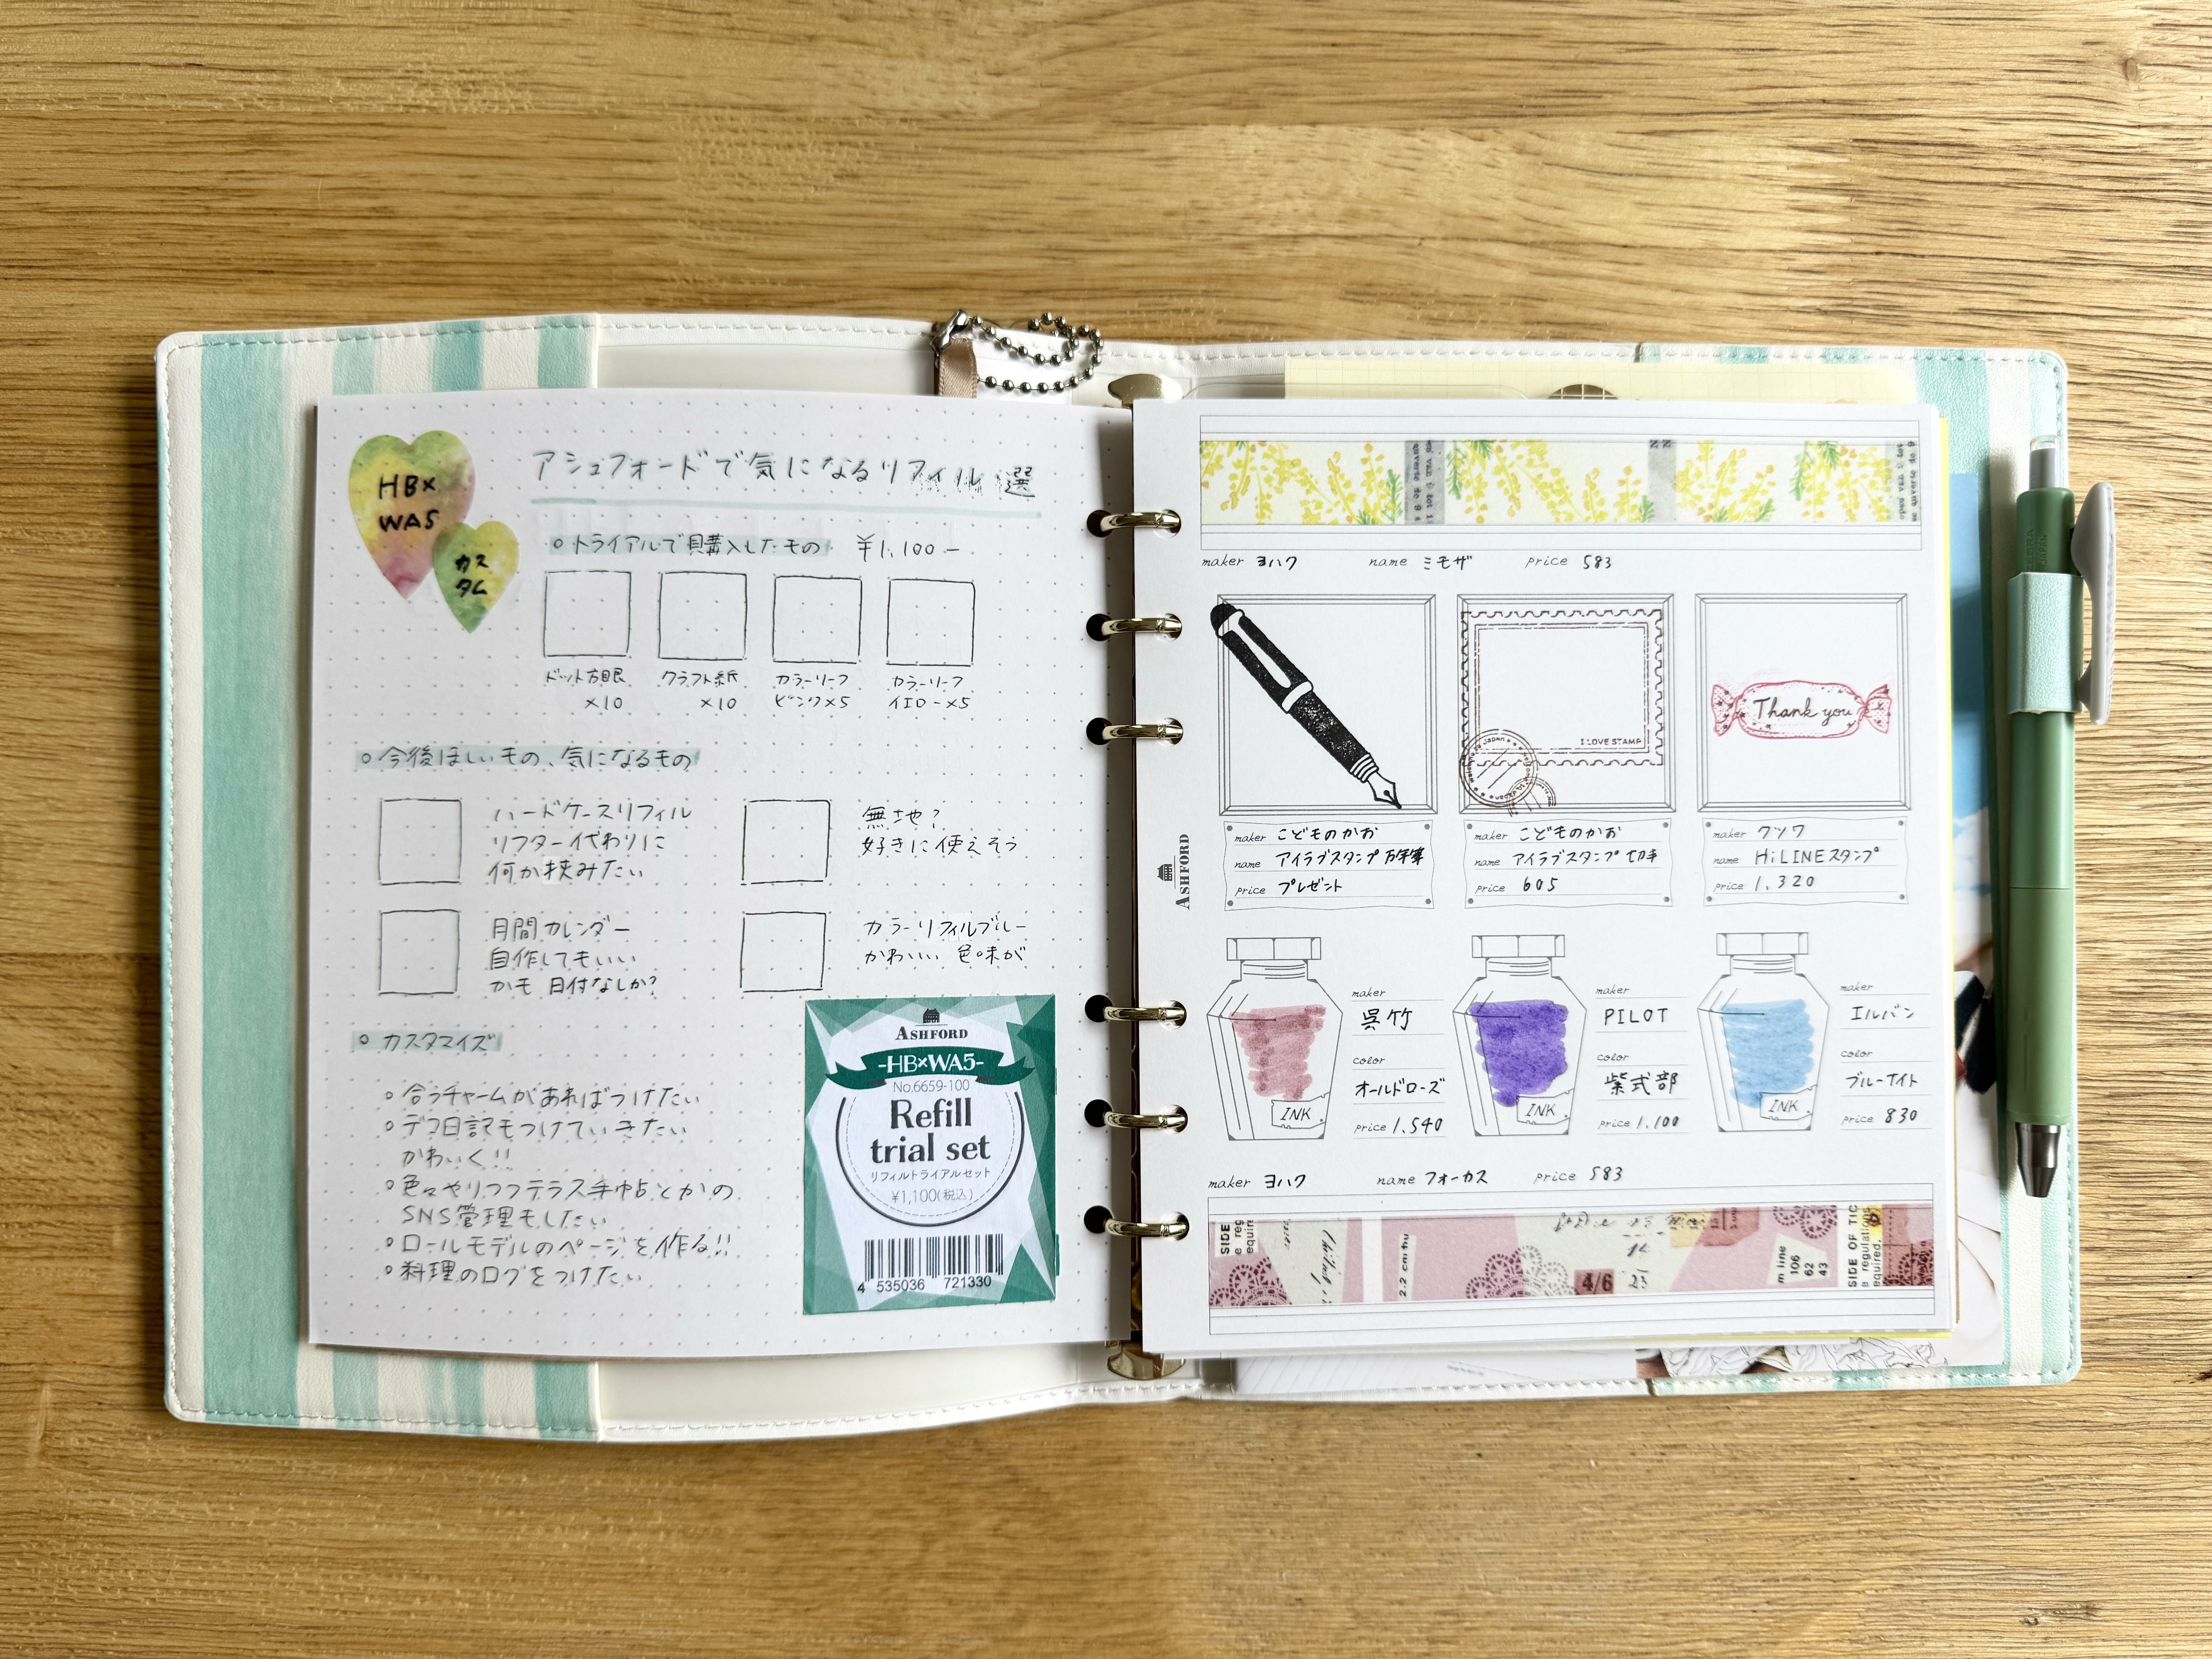 HB×
WA5
カス
タム
アシュフォードで気になるリフィル選
○トライアルで購入したもの ¥1,100-
ドット方眼
×10
クラフト紙
×10
カラーリーフ
ピンク×5
カラーリーフ
イエロー×5
○今後ほしいもの、気になるもの
ハードケースリフィル
リフター代わりに
何か挟みたい
無地?
好きに使えそう
月間カレンダー
自作してもいい
かも 日付なしか?
カラーリフィルブルー
かわいい 色味が
○カスタマイズ
○合うチャームがあればつけたい
○デコ日記もつけていきたい
かわいく!!
○色々やりつつテラス手帖とかの
SNS管理もしたい
○ロールモデルのページを作る!!
○料理のログをつけたい
ASHFORD
-HB×WA5-
No.6659-100
Refill
trial set
リフィルトライアルセット
¥1,100(税込)
4 535036 721330
maker ヨハク name ミモザ price 583
I LOVE STAMP
Thank you
maker こどものかお
name アイラブスタンプ 万年筆
price プレゼント
maker こどものかお
name アイラブスタンプ 切手
price 605
maker クツワ
name HiLINEスタンプ
price 1,320
ASHFORD
maker
呉竹
color
オールドローズ
price 1,540
INK
maker
PILOT
color
紫式部
price 1,100
INK
maker
エルバン
color
ブルーナイト
price 830
INK
maker ヨハク name フォーカス price 583
SIDE
e reg
equire
2.2 cm hu
4/6
25
m line
106
62
43
SIDE OF TIC
a regulati
equired.